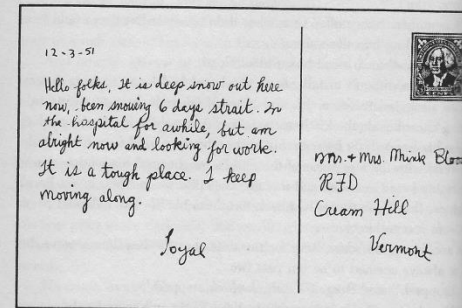 12-3-51
Hello folks, It is deep snow out here
now, been snowing 6 days strait. In
the hospital for awhile, but am
alright now and looking for work.
It is a tough place. I keep
moving along.
Loyal
Mr. + Mrs. Mink Bloo
RFD
Cream Hill
Vermont